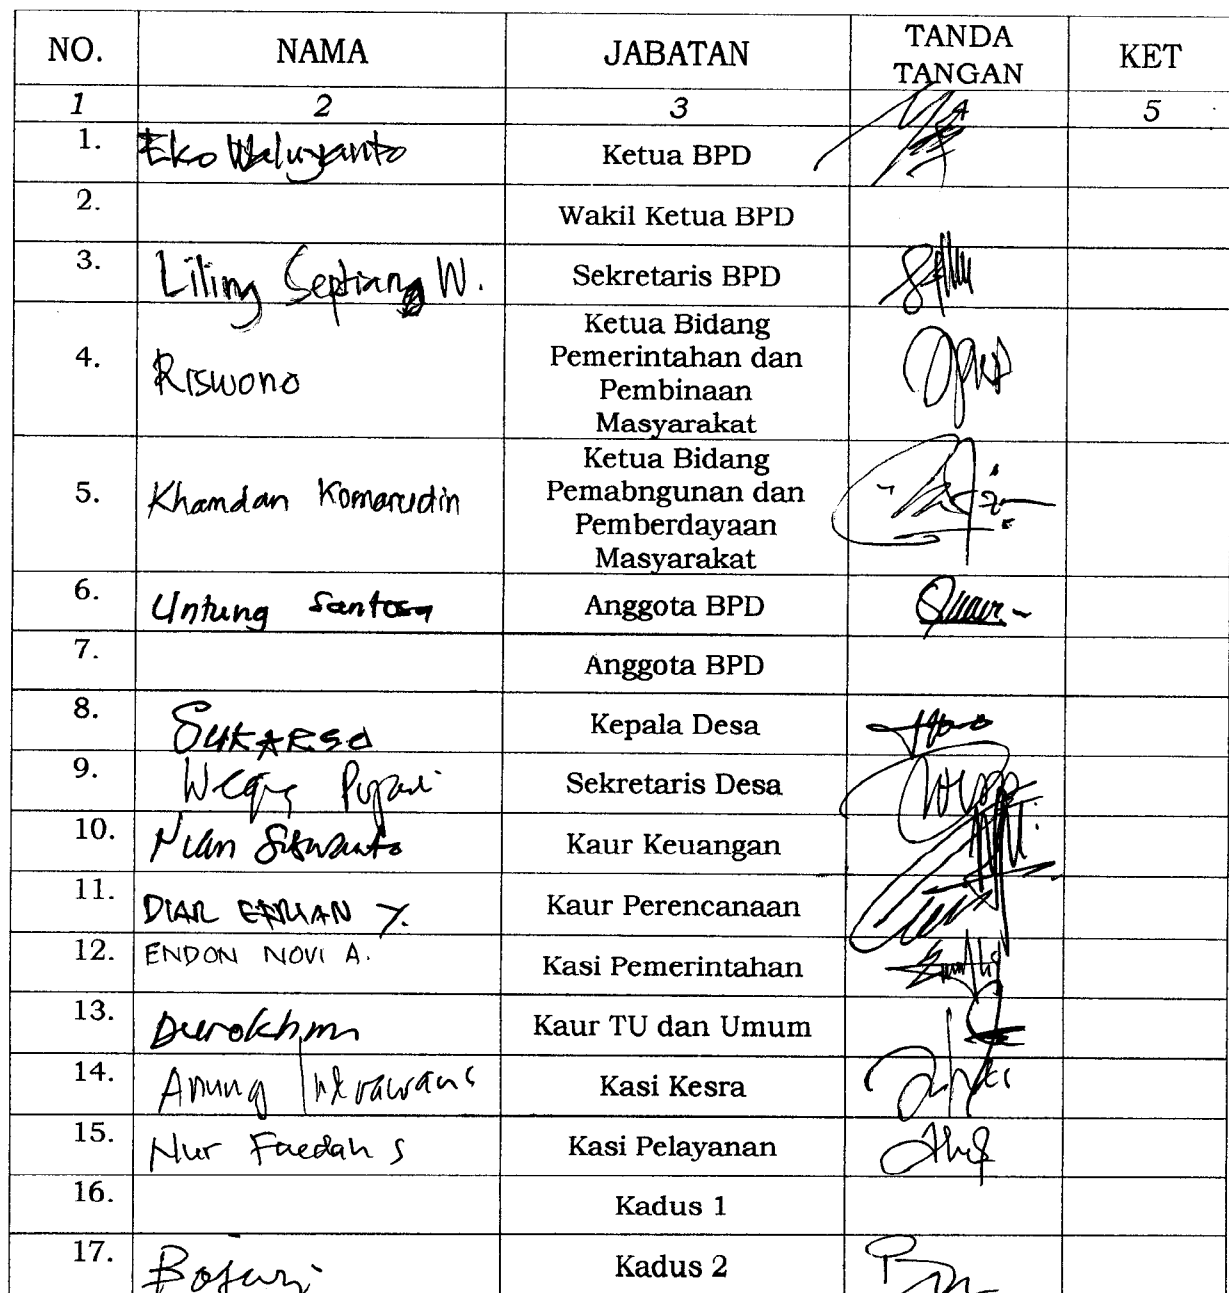 NO. NAMA JABATAN TANDA TANGAN KET
1 2 3 4 5
1. Eko Waluyanto Ketua BPD
2. Wakil Ketua BPD
3. Liling Septiang W. Sekretaris BPD
4. Riswono Ketua Bidang
Pemerintahan dan
Pembinaan
Masyarakat
5. Khamdan Komarudin Ketua Bidang
Pemabngunan dan
Pemberdayaan
Masyarakat
6. Untung Santosa Anggota BPD
7. Anggota BPD
8. SUKARSO Kepala Desa
9. Sekretaris Desa
10. Kaur Keuangan
11. DIAR Kaur Perencanaan
12. ENDON NOVI A. Kasi Pemerintahan
13. Durokhim Kaur TU dan Umum
14. Anung Kasi Kesra
15. Nur Faedah S Kasi Pelayanan
16. Kadus 1
17. Kadus 2